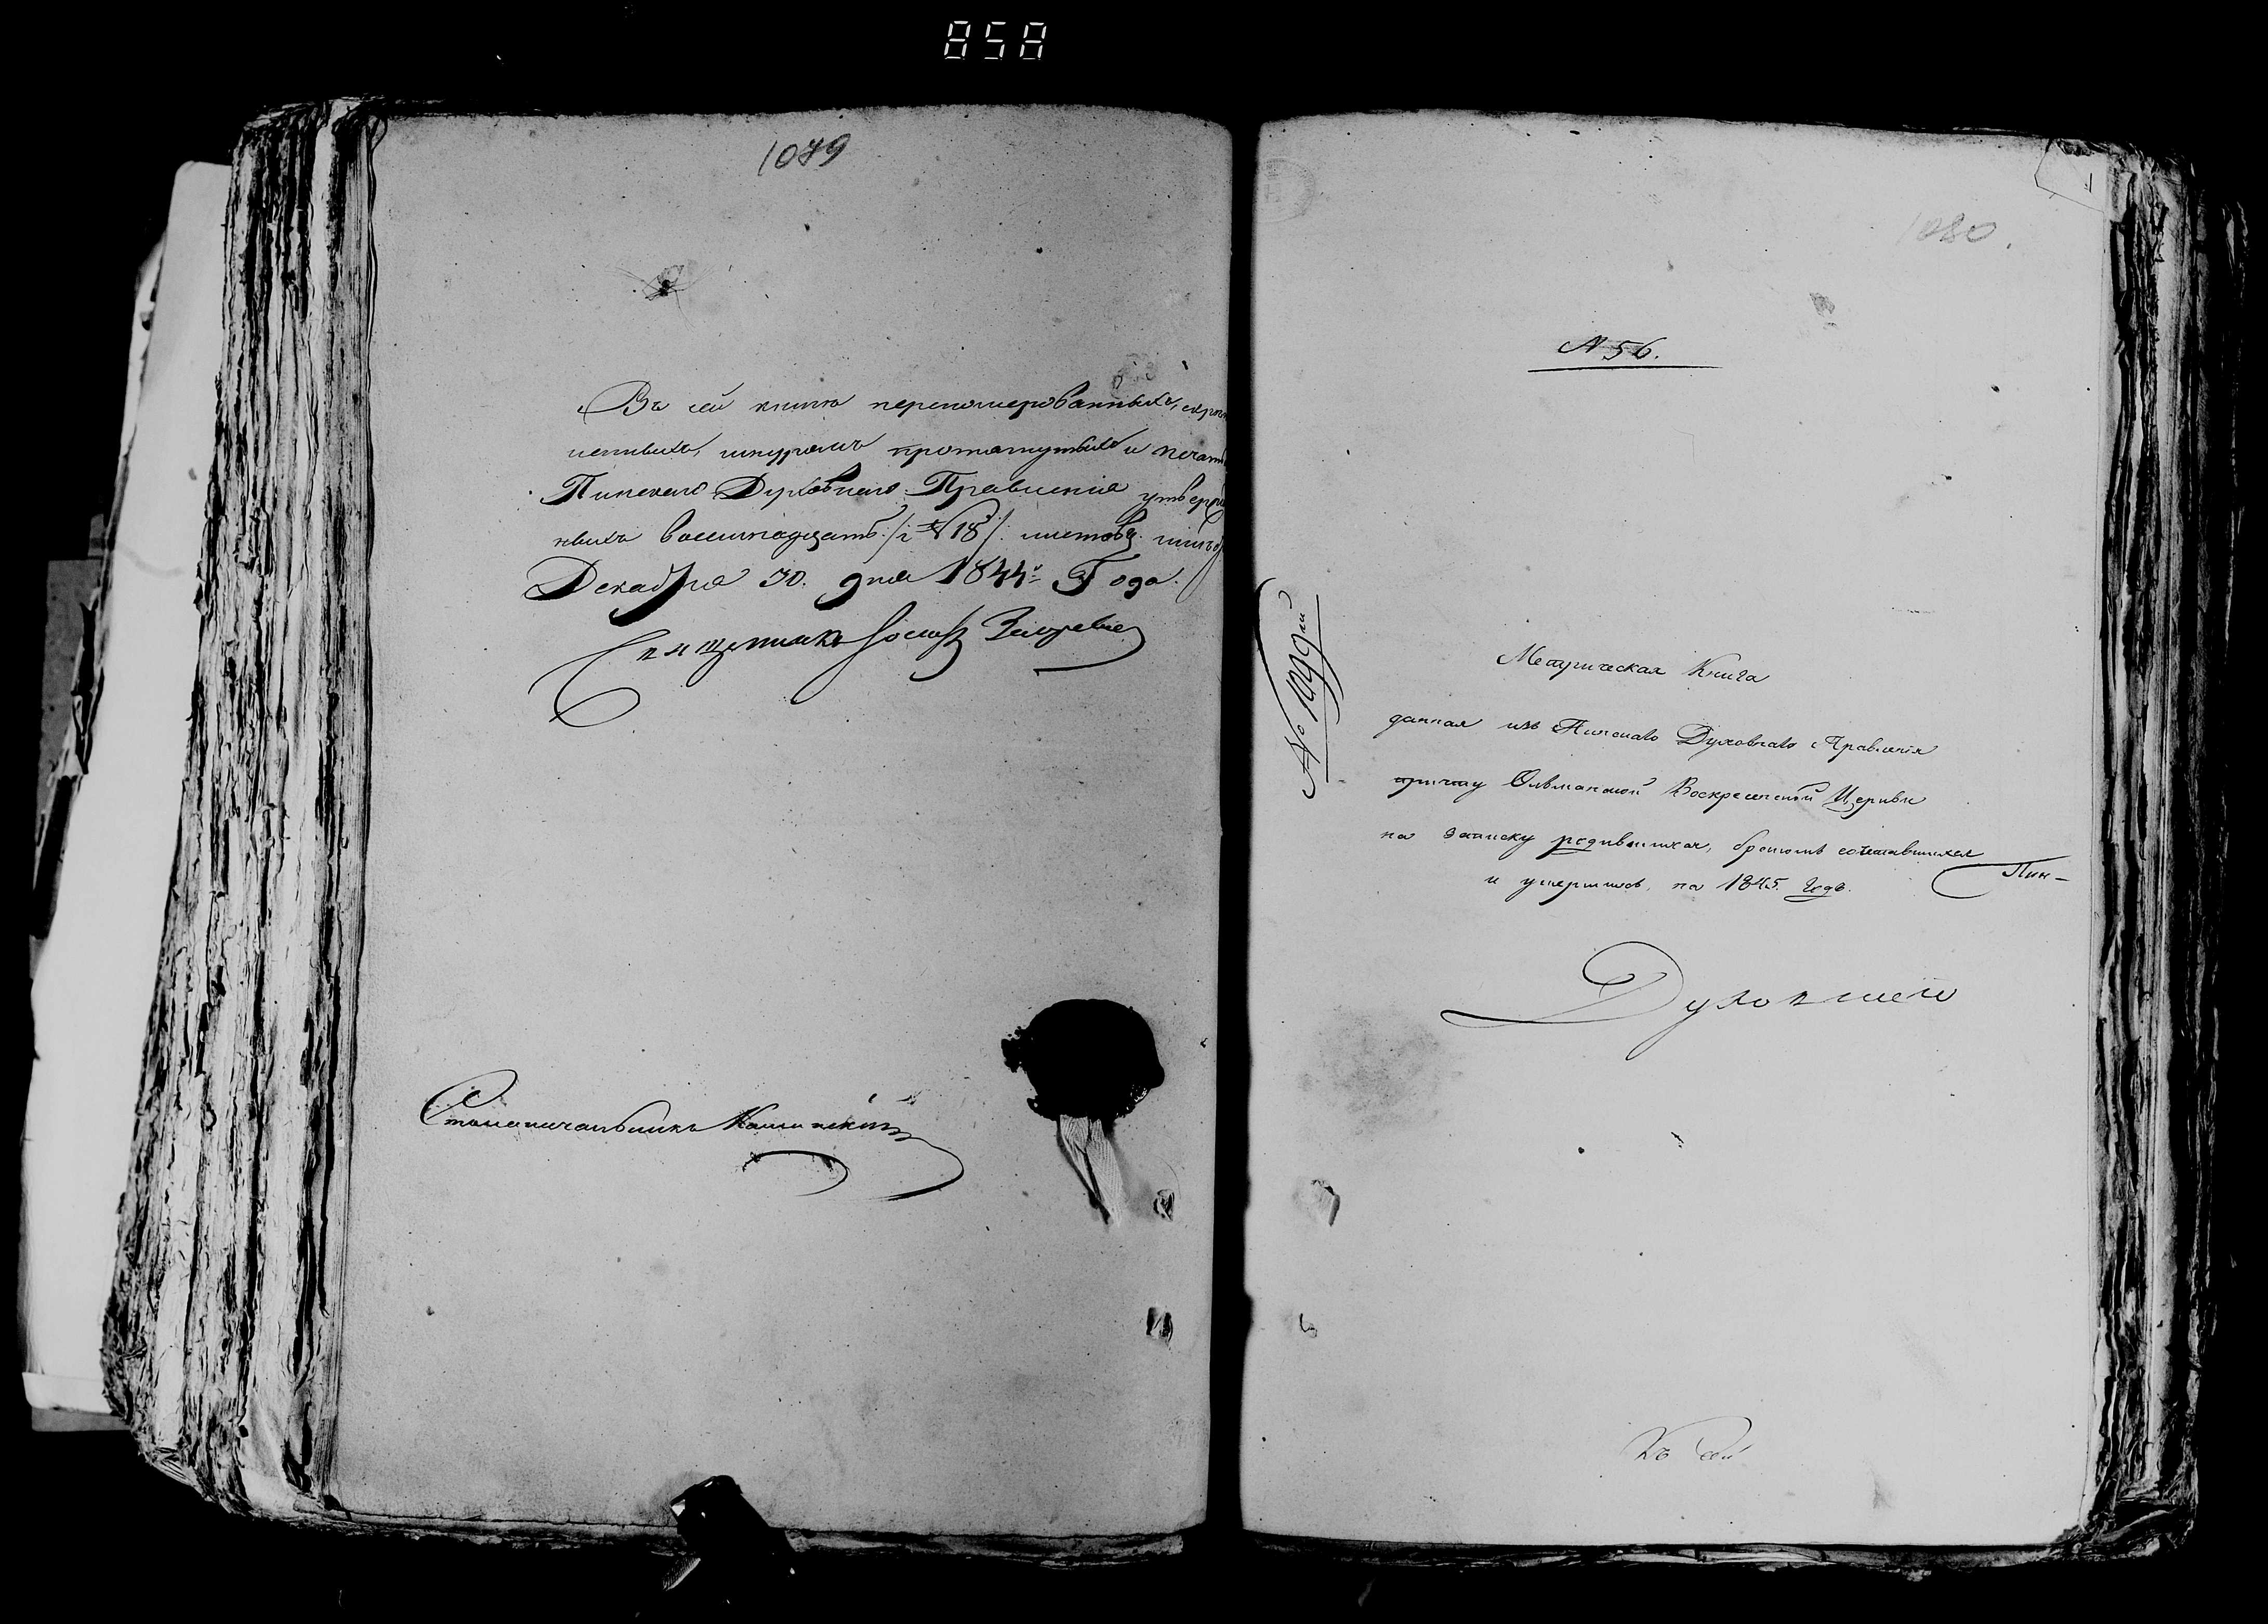 858
1079
Въ сей книгѣ перенумерованныхъ, скрѣп
ленныхъ, шнуромъ протянутыхъ и печатью
Пинскаго Духовнаго Правленія утвержд
ныхъ восемнадцать /: № 18 :/ листовъ
Декабря 30. дня 1844го Года.
Священникъ Іосифъ
Столоначальникъ
1080.
№ 56.
Метрическая Книга
данная изъ Пинскаго Духовнаго Правленія
причту Ольманской Воскресенской Церкви
на записку родившихся, бракомъ сочетавшихся
и умершихъ, на 1845. Годъ.
Пин-
Духовнаго
Къ сей